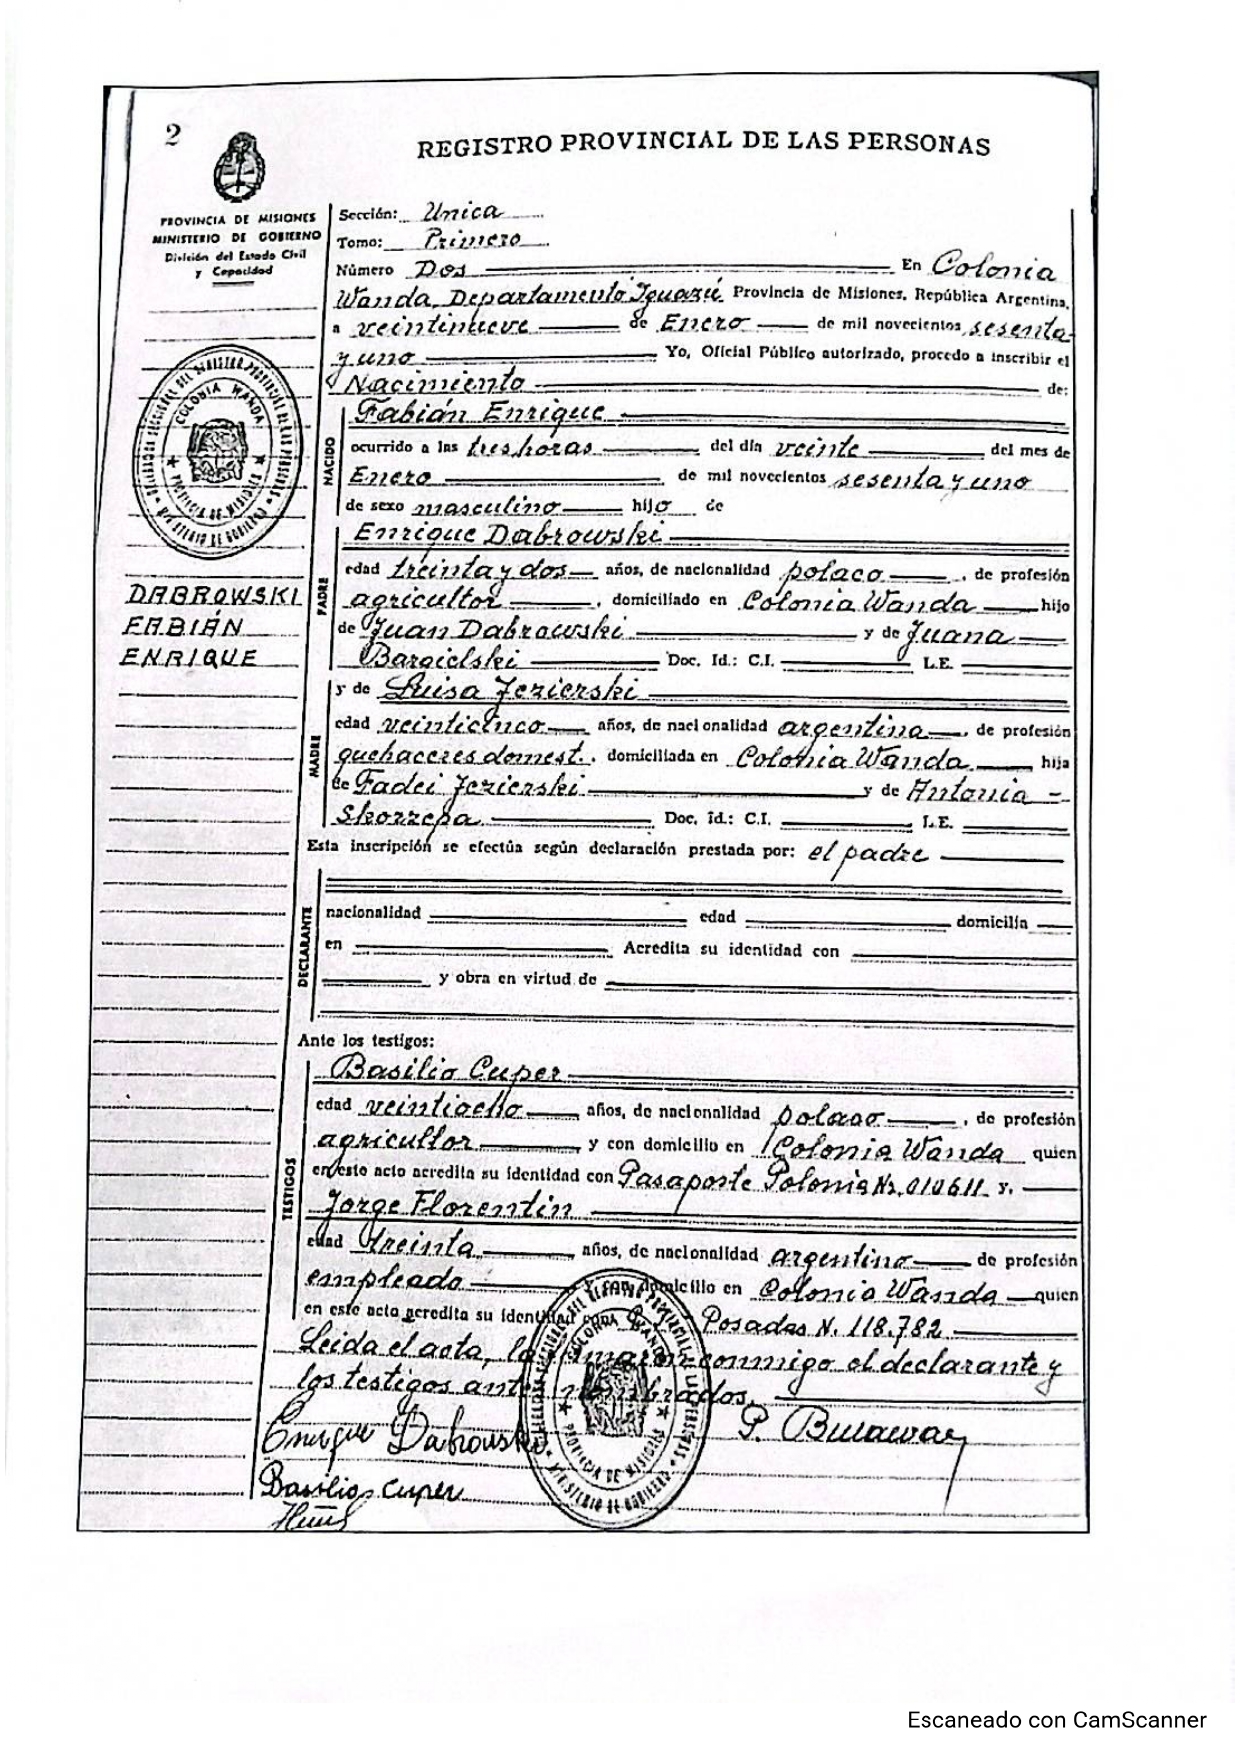 2
REGISTRO PROVINCIAL DE LAS PERSONAS
PROVINCIA DE MISIONES
MINISTERIO DE GOBIERNO
División del Estado Civil
y Capacidad
Sección: Unica
Tomo: Primero
Número Dos En Colonia
Wanda, Departamento Iguazú Provincia de Misiones, República Argentina,
a veintinueve de Enero de mil novecientos sesenta
y uno Yo, Oficial Público autorizado, procedo a inscribir el
Nacimiento de:
NACIDO
Fabián Enrique
ocurrido a las tres horas del día veinte del mes de
Enero de mil novecientos sesenta y uno
de sexo masculino hijo de
COLONIA WANDA
PROVINCIA DE MISIONES
MINISTERIO DE GOBIERNO
DABROWSKI
FABIÁN
ENRIQUE
PADRE
Enrique Dabrowski
edad treinta y dos años, de nacionalidad polaco, de profesión
agricultor, domiciliado en Colonia Wanda hijo
de Juan Dabrowski y de Juana
Bargielski Doc. Id.: C.I. L.E.
MADRE
y de Luisa Jezierski
edad veinticinco años, de nacionalidad argentina, de profesión
quehaceres domest., domiciliada en Colonia Wanda hija
de Fadei Jezierski y de Antonia -
Skorzepa Doc. Id.: C.I. L.E.
Esta inscripción se efectúa según declaración prestada por: el padre
DECLARANTE
nacionalidad edad domicilia
en Acredita su identidad con
y obra en virtud de
Ante los testigos:
TESTIGOS
Basilio Cuper
edad veintiocho años, de nacionalidad polaco, de profesión
agricultor y con domicilio en Colonia Wanda quien
en este acto acredita su identidad con Pasaporte Polonia Nr. 010611 y.
Jorge Florentin
edad treinta años, de nacionalidad argentino de profesión
empleado y con domicilio en Colonia Wanda quien
en este acto acredita su identidad con Posadas N. 118.782
Leida el acta, la firmaron conmigo el declarante y
los testigos antes nombrados.
Enrique Dabrowski
Basilio Cuper
COLONIA WANDA
PROVINCIA DE MISIONES
MINISTERIO DE GOBIERNO
Escaneado con CamScanner